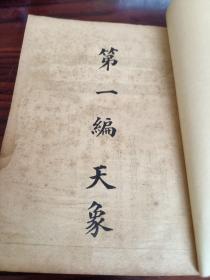 第一編 天象